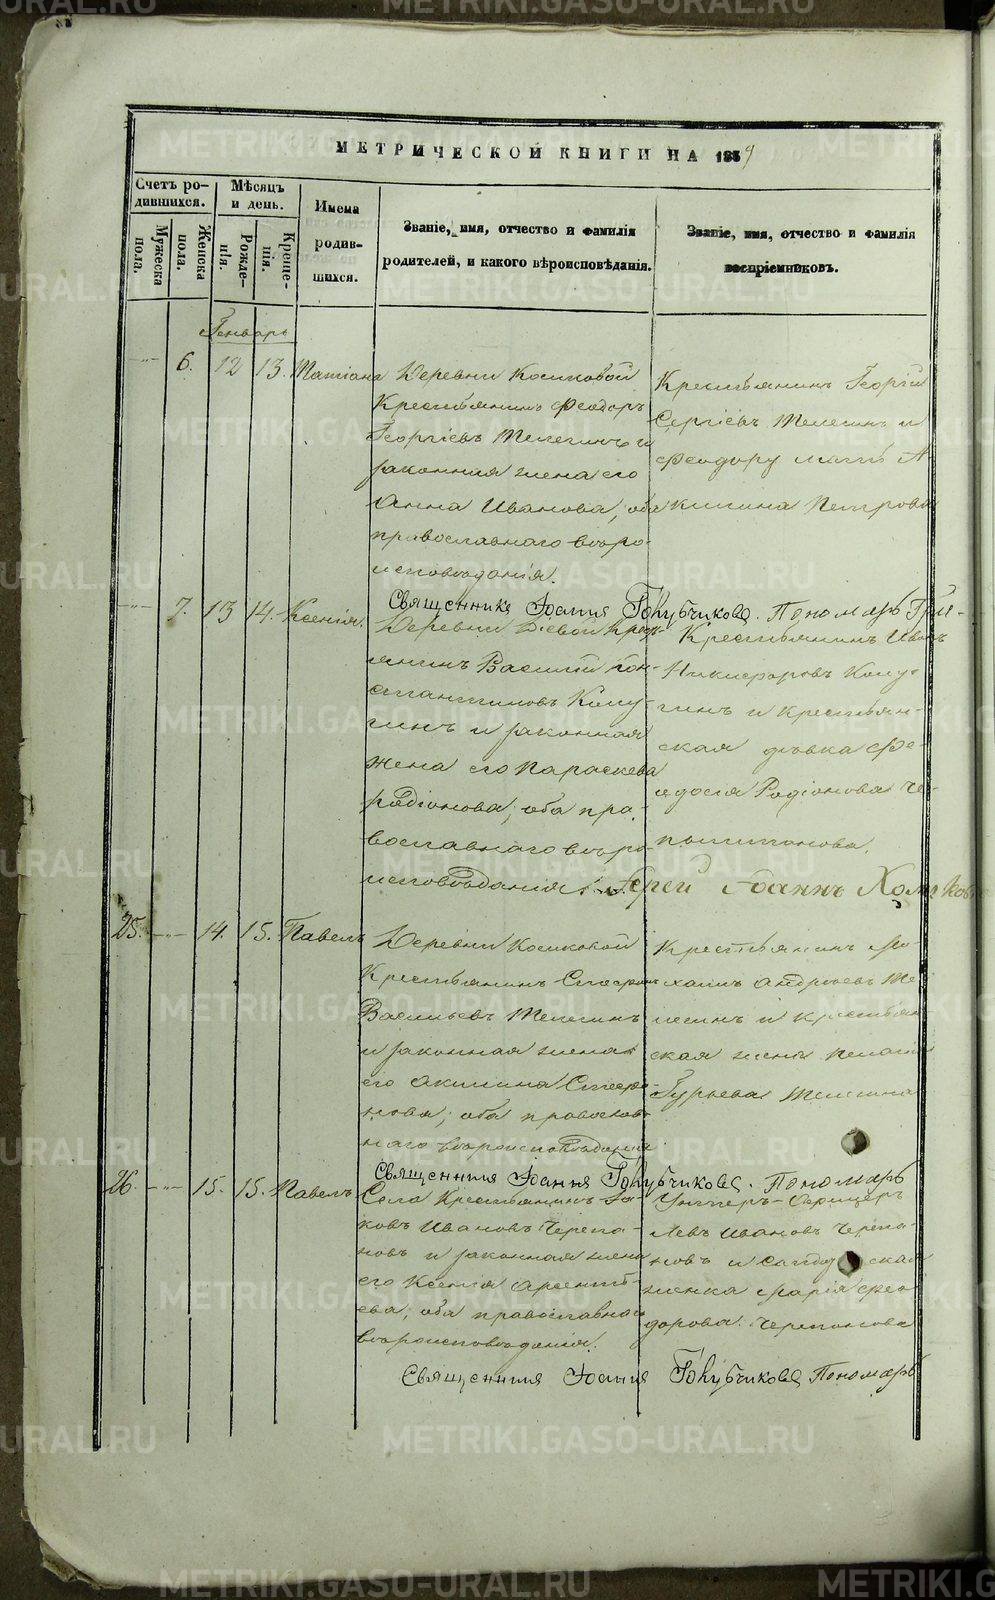 МЕТРИЧЕСКОЙ КНИГИ НА 1859
Счетъ ро-
дившихся.
Мужеска
пола.
Женска
пола.
Мѣсяцъ
и день.
Рожде-
нія.
Креще-
нія.
Имена
родив-
шихся.
Званіе, имя, отчество и фамилія
родителей, и какого вѣроисповѣданія.
Званіе, имя, отчество и фамилія
воспріемниковъ.
Генварь
6. 12 13. Татіана
Деревни Косиковой
Крестьянинъ Феодоръ
Георгіевъ Телегинъ и
законная жена его
Анна Иванова, оба
православнаго вѣро-
исповѣданія.
Крестьянинъ Георгій
Сергіевъ Телегинъ и
Феодору мать А
килина Петрова
Священникъ Іоаннъ Голубчиковъ. Пономарь
7. 13 14. Ксенія.
Деревни
янинъ Василій Кон-
стантиновъ
гинъ и законная
жена его Параскева
Родіонова, оба пра-
вославнаго вѣро-
исповѣданія.
Крестьянинъ Иванъ
Никифоровъ
гинъ и крестьян-
ская дѣвка Фе-
одосія Родіонова Че-
Іерей Іоаннъ
25. 14. 15. Павелъ
Деревни Косиковой
Крестьянинъ Стефанъ
Васильевъ Телегинъ
и законная жена
его Акилина Стефа-
нова, оба православ-
наго вѣроисповѣданія.
Крестьянинъ Ми-
хаилъ Андреевъ Те-
легинъ и крестьян
ская жена Пелагія
Гурьева Телегина
Священникъ Іоаннъ Голубчиковъ. Пономарь
26. 15. 15. Павелъ
Села Крестьянинъ Іа-
ковъ Ивановъ Черепа-
новъ и законная жена
его Ксенія Арсеніе-
ва, оба православнаго
вѣроисповѣданія.
Унтеръ-Офицеръ
Левъ Ивановъ Черепа-
новъ и солдатская
женка Марія Фео-
дорова Черепанова
Священникъ Іоаннъ Голубчиковъ Пономарь
METRIKI.GASO-URAL.RU